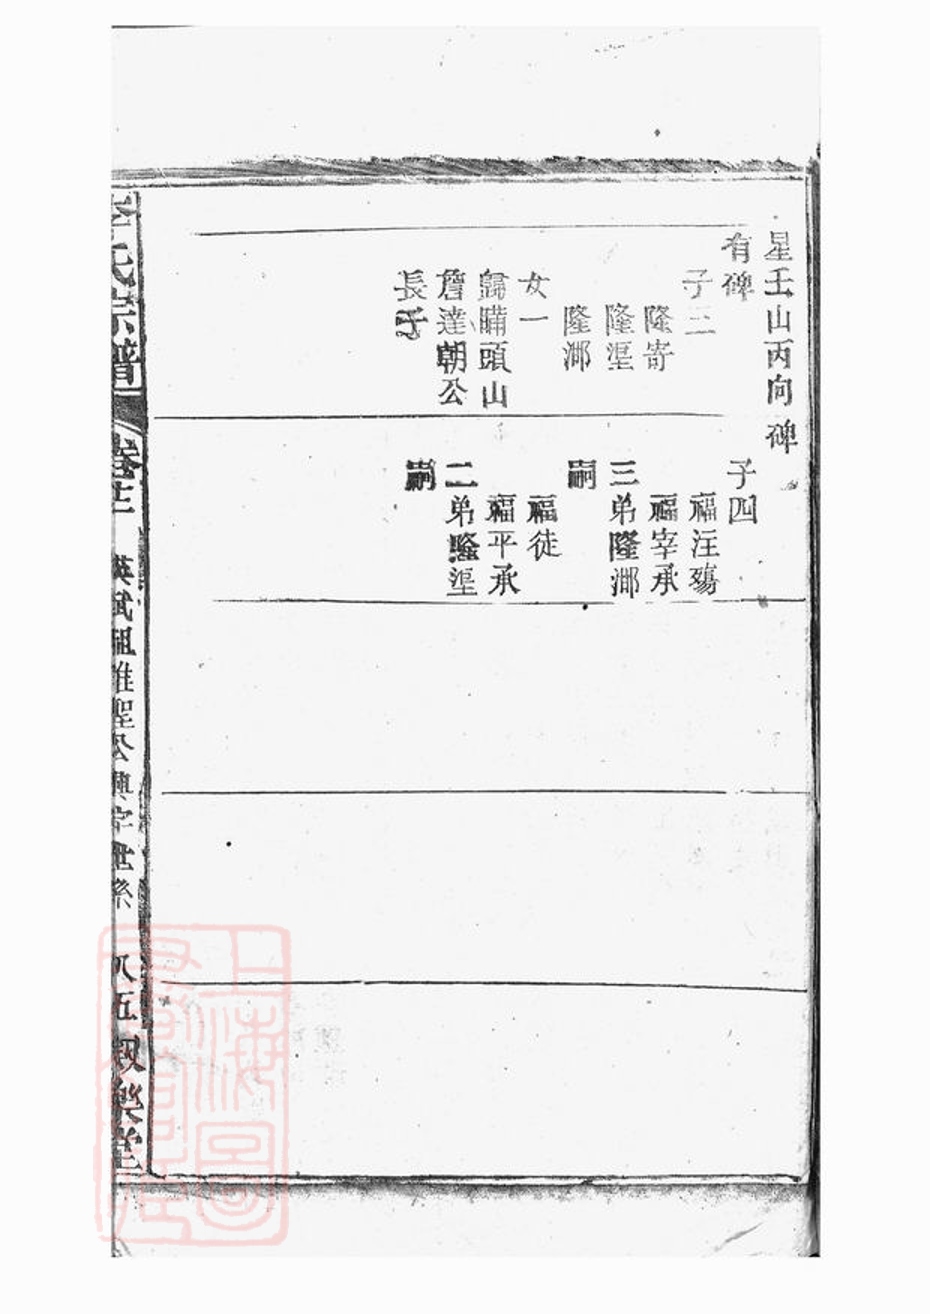 星壬山丙向
有碑
子三
隆寄
隆渠
隆㴬
女一
歸瞞頭山
詹達朝公
長子
碑
子四
福注殤
福宰承
三弟隆㴬
嗣
福徒
福平承
二弟隆渠
嗣
李氏宗譜
卷廿
英武祖維聖公興字世系
八五
叙樂堂
上海圖